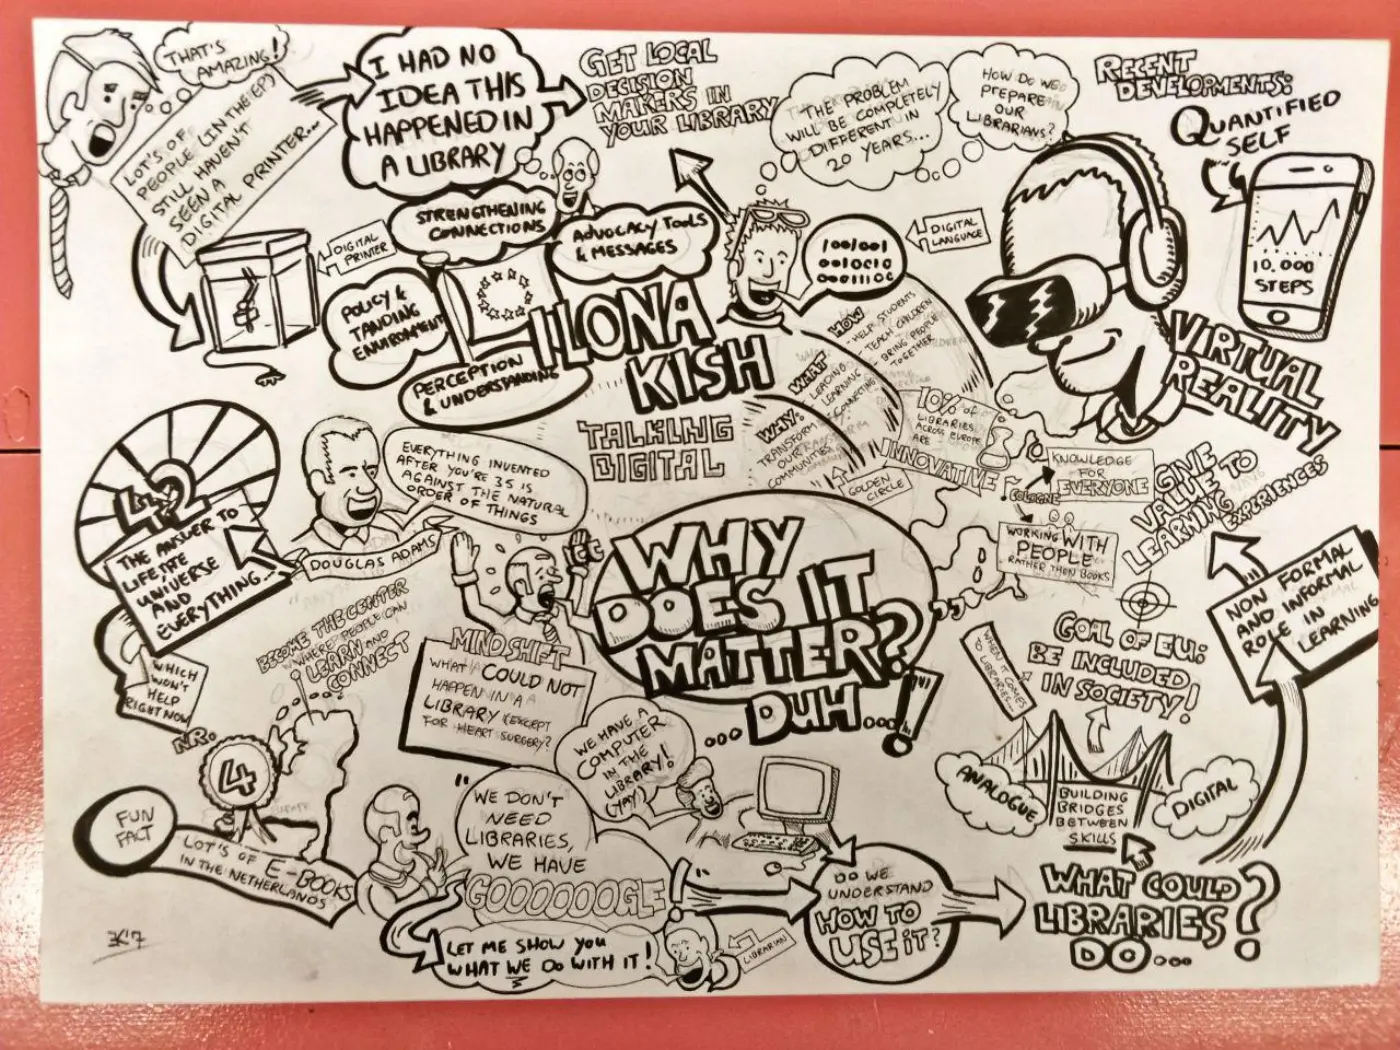 THAT'S
AMAZING!
LOT'S OF
PEOPLE (IN THE EP)
STILL HAVEN'T
SEEN A
DIGITAL PRINTER...
I HAD NO
IDEA THIS
HAPPENED IN
A LIBRARY
GET LOCAL
DECISION
MAKERS IN
YOUR LIBRARY
THE PROBLEM
WILL BE COMPLETELY
DIFFERENT IN
20 YEARS...
HOW DO WE
PREPARE
OUR
LIBRARIANS?
RECENT
DEVELOPMENTS:
QUANTIFIED
SELF
10.000
STEPS
VIRTUAL
REALITY
DIGITAL
PRINTER
STRENGTHENING
CONNECTIONS
ADVOCACY TOOLS
& MESSAGES
POLICY &
TANDING
ENVIROMENT
PERCEPTION
& UNDERSTANDING
ILONA
KISH
TALKING
DIGITAL
1001001
0010010
DIGITAL
LANGUAGE
HOW
- HELP STUDENTS
- TEACH CHILDREN
- BRING PEOPLE
TOGETHER
WHAT
LEADING
LEARNING
CONNECTING
WHY:
TRANSFORM
OUR
COMMUNITIES
GOLDEN
CIRCLE
10% of
LIBRARIES
ACROSS EUROPE
ARE
INNOVATIVE
COLOGNE
KNOWLEDGE
FOR
EVERYONE
WORKING WITH
PEOPLE
RATHER THEN BOOKS
GIVE
VALUE TO
LEARNING
EXPERIENCES
NON FORMAL
AND INFORMAL
ROLE IN
LEARNING
42
THE ANSWER TO
LIFE, THE
UNIVERSE
AND
EVERYTHING...
WHICH
WON'T
HELP
RIGHT NOW
EVERYTHING INVENTED
AFTER YOU'RE 35 IS
AGAINST THE NATURAL
ORDER OF THINGS
DOUGLAS ADAMS
BECOME THE CENTER
WHERE PEOPLE CAN
LEARN AND
CONNECT
MINDSHIFT
WHAT COULD NOT
HAPPEN IN A
LIBRARY (EXCEPT
FOR HEART SURGERY?
WHY
DOES IT
MATTER?
...DUH...!
WHEN IT COMES
TO LIBRARIES
GOAL OF EU:
BE INCLUDED
IN SOCIETY!
ANALOGUE
BUILDING
BRIDGES
BETWEEN
SKILLS
DIGITAL
NR.
4
FUN
FACT
LOT'S OF E-BOOKS
IN THE NETHERLANDS
WE HAVE A
COMPUTER
IN THE
LIBRARY!
(YAY)
"WE DON'T
NEED
LIBRARIES,
WE HAVE
GOOOOOOGLE
LET ME SHOW YOU
WHAT WE DO WITH IT!
LIBRARIAN
DO WE
UNDERSTAND
HOW TO
USE IT?
WHAT COULD
LIBRARIES
DO...?